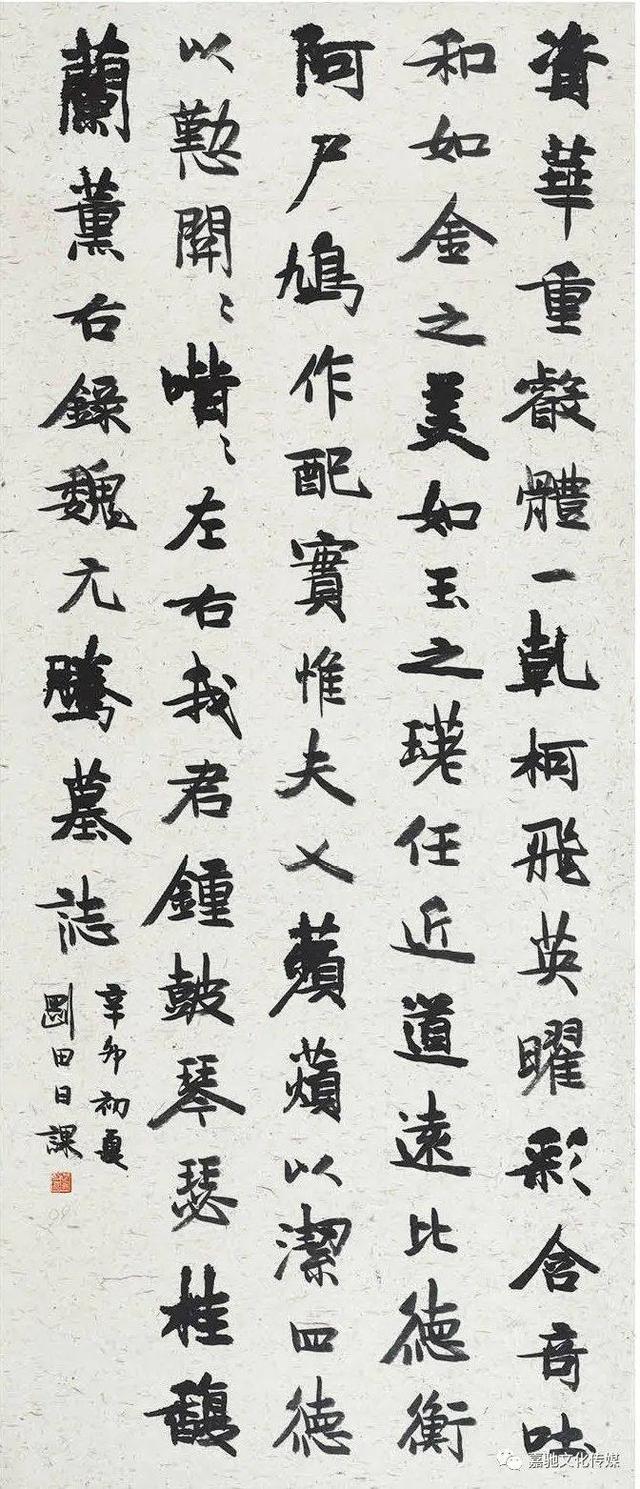 資華重叡體一乾柯飛英曜彩含音吐
和如金之美如玉之瑛任近道遠比德衡
阿尸鳩作配實惟夫乂蘋薠以潔四德
以懃關〻喈〻左右我君鍾鼓琴瑟桂馥
蘭薰右錄魏元騰墓誌
辛卯初夏
剛田日課
嘉驰文化传媒